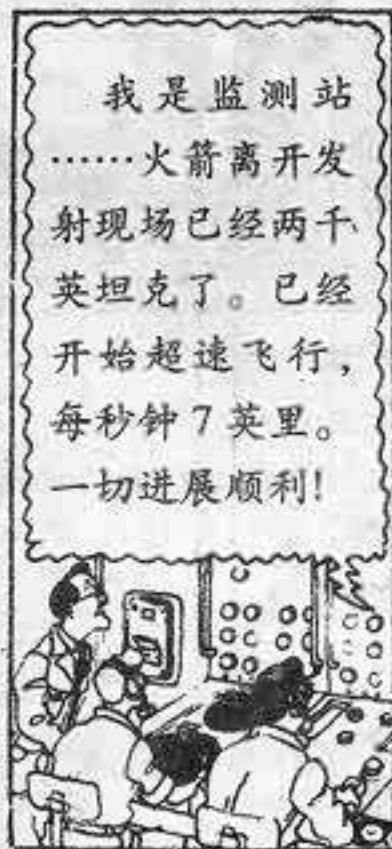 我是监测站
……火箭离开发
射现场已经两千
英坦克了。已经
开始超速飞行，
每秒钟7英里。
一切进展顺利！